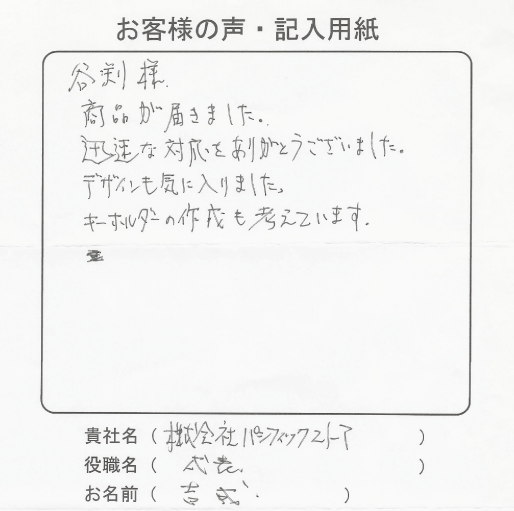 お客様の声・記入用紙
谷渕様
商品が届きました。
迅速な対応をありがとうございました。
デザインも気に入りました。
キーホルダーの作成も考えています。
貴社名（株式会社パシフィックストア）
役職名（代表）
お名前（吉）